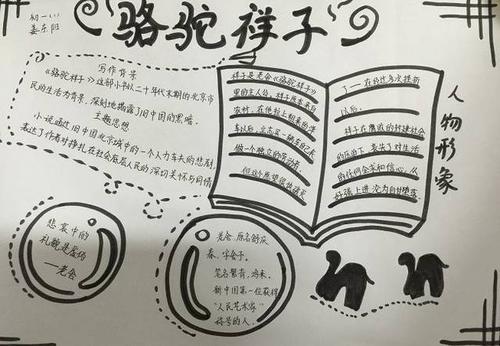 骆驼祥子
初一(1)
写作背景
《骆驼祥子》这部小说以二十年代末期的北京市
民的生活为背景,深刻地揭露了旧中国的黑暗。
主题思想
小说通过旧中国北京城中的一个人力车夫的悲剧,
表达了作者对挣扎在社会底层人民的深切关怀与同情
祥子是老舍《骆驼祥子》
里的主人公,祥子原来来自
农村,在他拉上租来的洋
车以后,立志买一辆车自己
做一个独立的劳动者。
但这个愿望很快
了一在经过多次挫折
以后,
祥子在腐败的封建社会
的压迫下,丧失了对生活
的任何企求和信心,从
好强上进沦为自甘堕落
人物形象
悲哀中的
礼貌是虚伪
—老舍
老舍,原名舒庆
春,字舍予,
笔名絜青、鸿来,
新中国第一位获得
“人民艺术家”
称号的人。